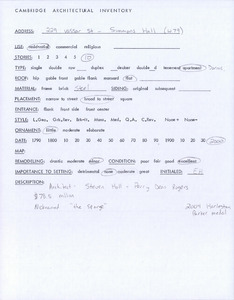 CAMBRIDGE ARCHITECTURAL INVENTORY
ADDRESS: 229 Vassar St - Simmons Hall (W79)
USE: residential commercial religious
STORIES: 1 2 3 4 5 6 10
TYPE: single double row duplex decker terrace apartment Dorms
ROOF: hip gable front gable flank mansard flat
MATERIAL: frame brick Steel SIDING: original subsequent
PLACEMENT: narrow to street broad to street square
ENTRANCE: flank front side front center
STYLE:
ORNAMENT: little moderate elaborate
DATE: 1790 1800 10 20 30 40 50 60 70 80 90 1900 10 20 30 2002
MAP:
REMODELING: drastic moderate minor CONDITION: poor fair good excellent
IMPORTANCE TO SETTING: detrimental none moderate great INITIALED: EH
DESCRIPTION:
Architect - Steven Holl - Perry Dean Rogers
$78.5 million
Nicknamed "the Sponge"
2003 Harleston
Parker medal